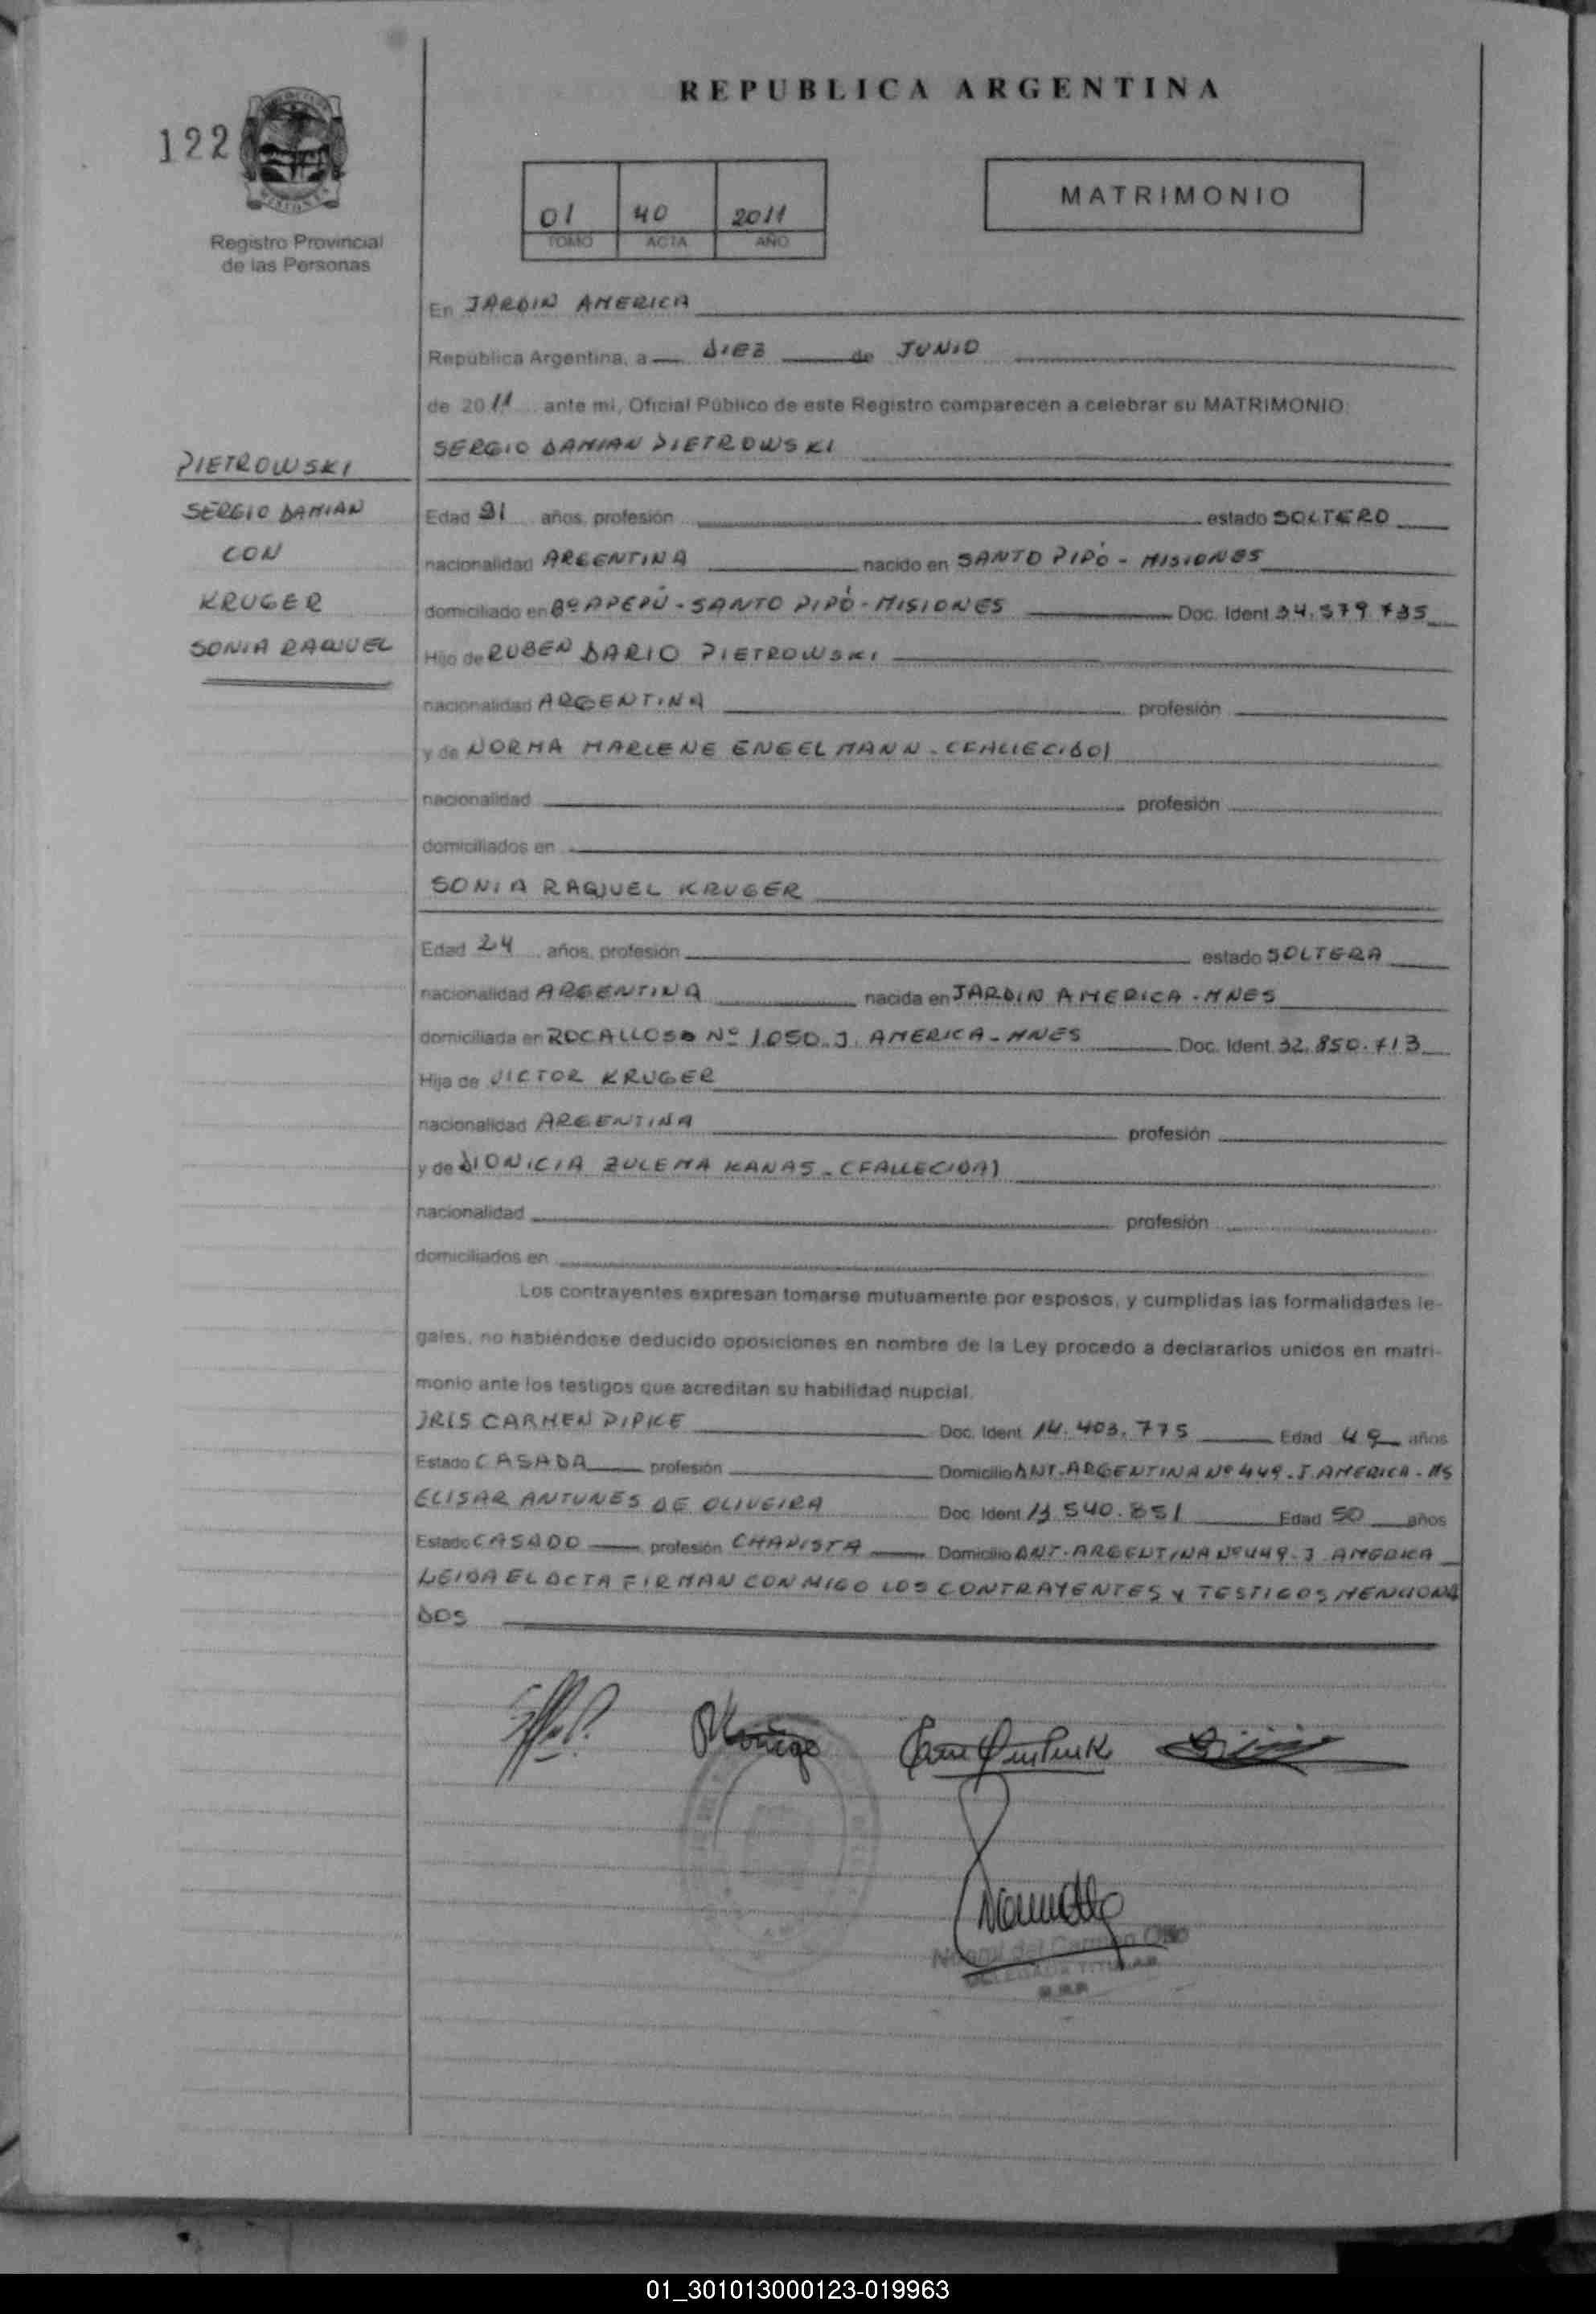 REPUBLICA ARGENTINA
122
01 40 2011
TOMO ACTA AÑO
MATRIMONIO
Registro Provincial
de las Personas
En JARDIN AMERICA
Republica Argentina, a DIEZ de JUNIO
de 2011 ante mi, Oficial Público de este Registro comparecen a celebrar su MATRIMONIO:
SERGIO DAMIAN PIETROWSKI
PIETROWSKI
SERGIO DAMIAN
CON
KRUGER
SONIA RAQUEL
Edad años, profesión estado SOLTERO
nacionalidad ARGENTINA nacido en SANTO PIPÓ - MISIONES
domiciliado en Bº APEPÚ - SANTO PIPÓ - MISIONES Doc. Ident 34.579.735
Hijo de RUBEN DARIO PIETROWSKI
nacionalidad ARGENTINA profesión
y de NORMA MARLENE ENGELMANN - (FALLECIDO)
nacionalidad profesión
domiciliados en
SONIA RAQUEL KRUGER
Edad 24 años, profesión estado SOLTERA
nacionalidad ARGENTINA nacida en JARDIN AMERICA - MNES
domiciliada en ROCALLOSO Nº 1050 - J. AMERICA - MNES Doc. Ident 32.850.713
Hija de VICTOR KRUGER
nacionalidad ARGENTINA profesión
y de DIONICIA ZULEMA KANAS - (FALLECIDA)
nacionalidad profesión
domiciliados en
Los contrayentes expresan tomarse mutuamente por esposos, y cumplidas las formalidades le-
gales, no habiéndose deducido oposiciones en nombre de la Ley procedo a declararlos unidos en matri-
monio ante los testigos que acreditan su habilidad nupcial.
IRIS CARMEN PIPKE Doc. Ident 14.403.775 Edad 49 años
Estado CASADA profesión Domicilio ANT. ARGENTINA Nº 449 - J. AMERICA - MS
ELISAR ANTUNES DE OLIVEIRA Doc. Ident 13.540.851 Edad 50 años
Estado CASADO profesión CHAPISTA Domicilio ANT. ARGENTINA Nº 449 - J. AMERICA
LEIDA EL ACTA FIRMAN CON MIGO LOS CONTRAYENTES Y TESTIGOS MENCIONA
DOS
del Carmen
DELEGADA TITULAR
01_301013000123-019963